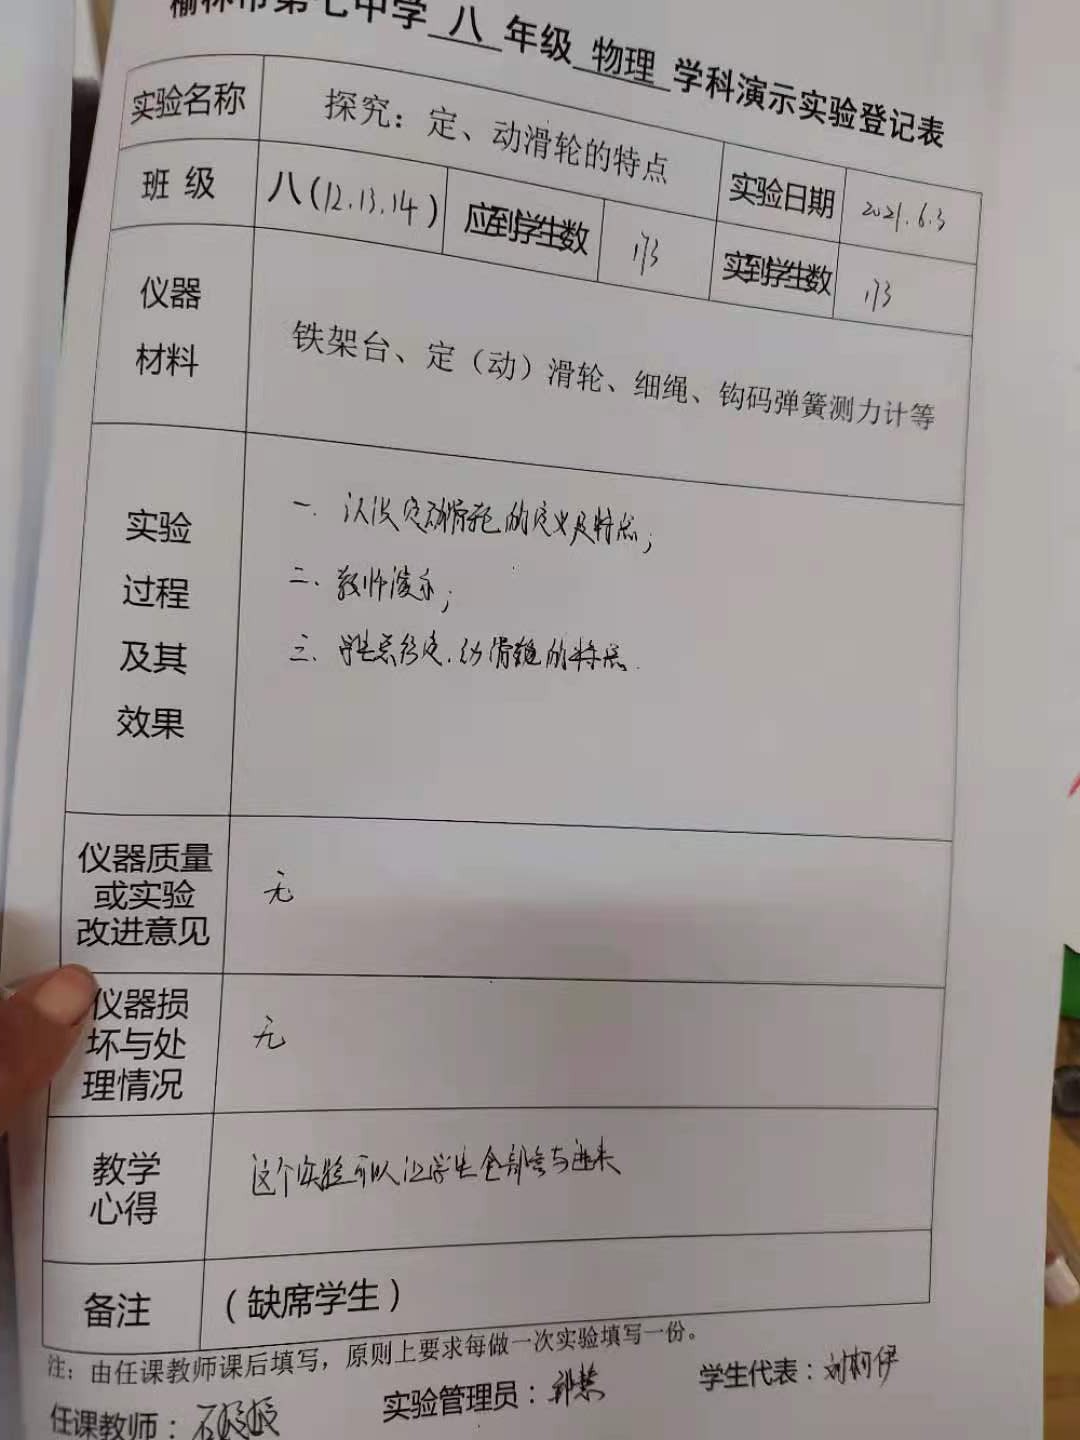 榆林市第七中学 八 年级 物理 学科演示实验登记表
实验名称 探究：定、动滑轮的特点 实验日期 2021.6.3
班 级 八(12.13.14) 应到学生数 173 实到学生数 173
仪器
材料
铁架台、定（动）滑轮、细绳、钩码弹簧测力计等
实验
过程
及其
效果
一. 认识定动滑轮的定义及特点；
二. 教师演示；
三. 学生总结定.动滑轮的特点.
仪器质量
或实验
改进意见
无
仪器损
坏与处
理情况
无
教学
心得
这个实验可以让学生全部参与进来
备注 （缺席学生）
注：由任课教师课后填写，原则上要求每做一次实验填写一份。
任课教师： 实验管理员： 学生代表：刘柯伊